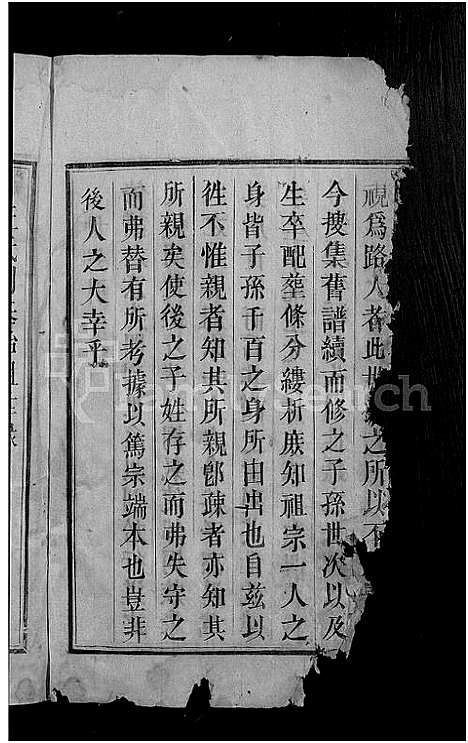 視爲路人者此世之所以不
今搜集舊譜續而修之子孫世次以及
生卒配塟條分縷析庻知祖宗一人之
身皆子孫千百之身所由出也自兹以
徃不惟親者知其所親卽疎者亦知其
所親矣使後之子姓存之而弗失守之
而弗替有所考據以篤宗端本也豈非
後人之大幸乎